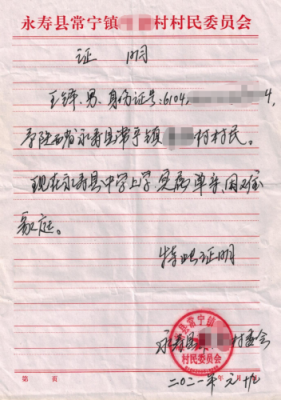 永寿县常宁镇 村村民委员会
证 明
王锋、男、身份证号:6104 4,
系陕西省永寿县常宁镇 村村民。
现在永寿县中学上学,实属单亲,困难
家庭。
特此证明
永寿县 村委会
县常宁镇
村民委员会
二〇二一年元十九
第 页 年 月 日